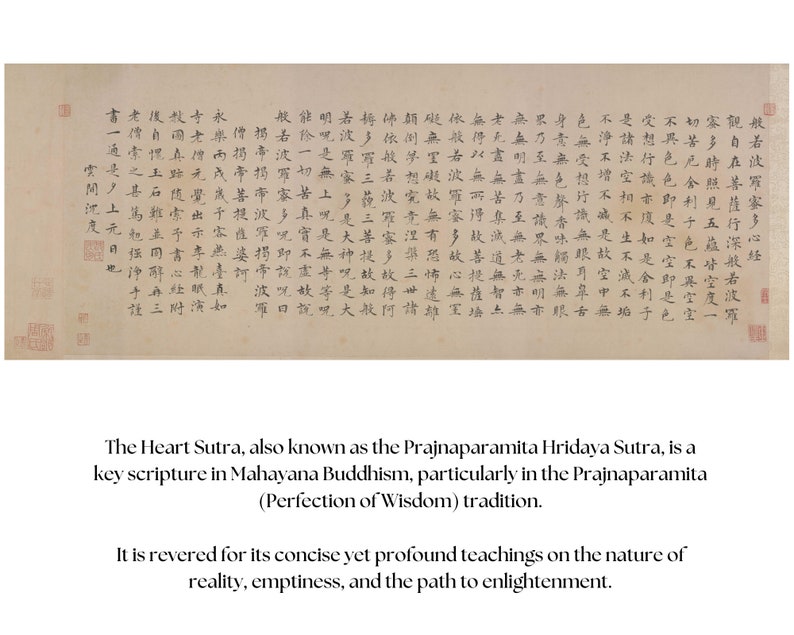 般若波羅蜜多心經
觀自在菩薩行深般若波羅
蜜多時照見五蘊皆空度一
切苦厄舍利子色不異空空
不異色色即是空空即是色
受想行識亦復如是舍利子
是諸法空相不生不滅不垢
不淨不增不減是故空中無
色無受想行識無眼耳鼻舌
身意無色聲香味觸法無眼
界乃至無意識界無無明亦
無無明盡乃至無老死亦無
老死盡無苦集滅道無智亦
無得以無所得故菩提薩埵
依般若波羅蜜多故心無罣
礙無罣礙故無有恐怖遠離
顛倒夢想究竟涅槃三世諸
佛依般若波羅蜜多故得阿
耨多羅三藐三菩提故知般
若波羅蜜多是大神呪是大
明呪是無上呪是無等等呪
能除一切苦真實不虛故說
般若波羅蜜多呪即說呪曰
揭帝揭帝波羅揭帝波羅
僧揭帝菩提薩婆訶
永樂丙戌歲予客燕臺真如
寺老僧元覺出示李龍眠演
教圖真跡随索予書心經附
後自愧玉石難並固辭再三
老僧索之甚篤勉强淨手謹
書一通是夕上元日也
雲間沈度
The Heart Sutra, also known as the Prajnaparamita Hridaya Sutra, is a
key scripture in Mahayana Buddhism, particularly in the Prajnaparamita
(Perfection of Wisdom) tradition.
It is revered for its concise yet profound teachings on the nature of
reality, emptiness, and the path to enlightenment.